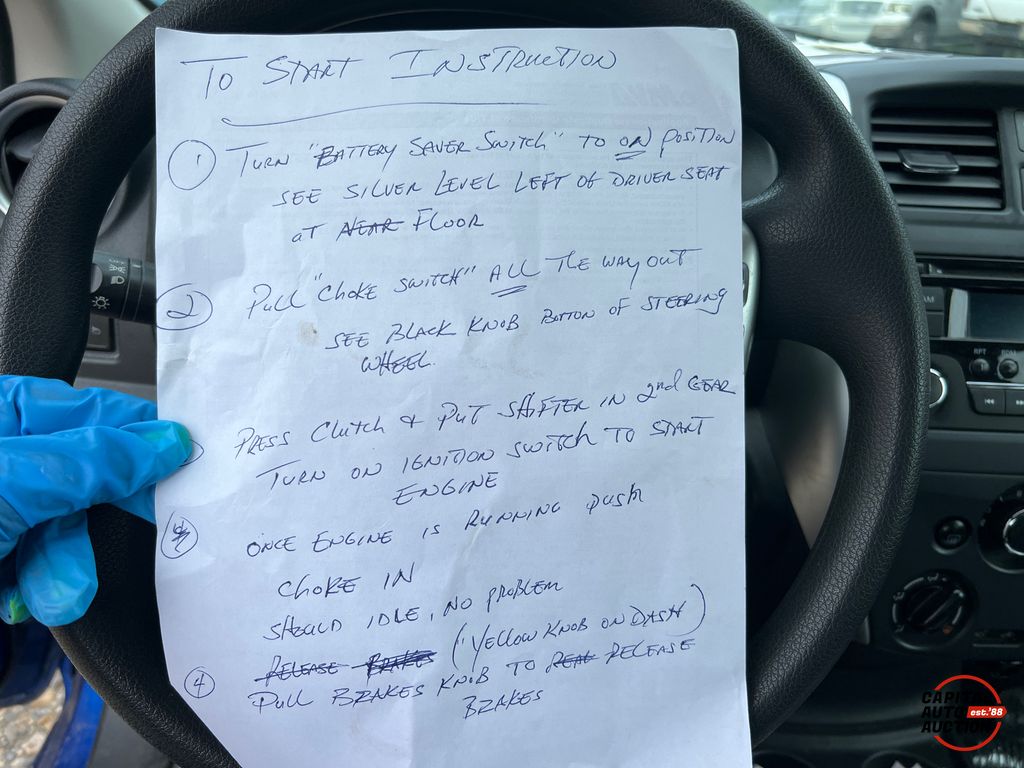 TO START INSTRUCTION
1 TURN "BATTERY SAVER SWITCH" TO ON POSITION
SEE SILVER LEVEL LEFT OF DRIVER SEAT
AT NEAR FLOOR
2 PULL "CHOKE SWITCH" ALL THE WAY OUT
SEE BLACK KNOB BOTTON OF STEERING
WHEEL.
PRESS CLUTCH & PUT SHIFTER IN 2nd GEAR
TURN ON IGNITION SWITCH TO START
ENGINE
ONCE ENGINE IS RUNNING PUSH
CHOKE IN
SHOULD IDLE, NO PROBLEM
RELEASE BRAKES (YELLOW KNOB ON DASH)
4 PULL BRAKES KNOB TO REAL RELEASE
BRAKES
AM
RPT
RDM
CAPITAL
AUTO est.'88
AUCTION